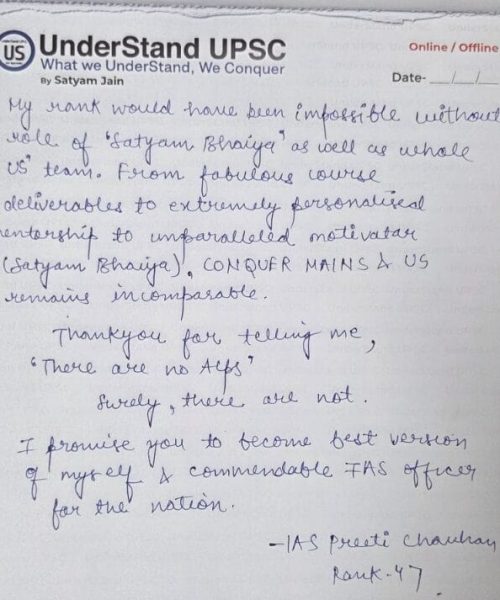 US
UnderStand UPSC
What we UnderStand, We Conquer
By Satyam Jain
Online / Offline
Date- __/__/__
My rank would have been impossible without
role of "Satyam Bhaiya" as well as whole
US" team. From fabulous course
deliverables to extremely personalised
entorship to unparalleled motivatar
(Satyam Bhaiya), CONQUER MAINS & US
remains incomparable.
Thankyou for telling me,
"There are no Alps"
Surely, there are not.
I promise you to become best version
of myself & commendable IAS officer
for the nation.
-IAS Preeti Chauhan
Rank-47